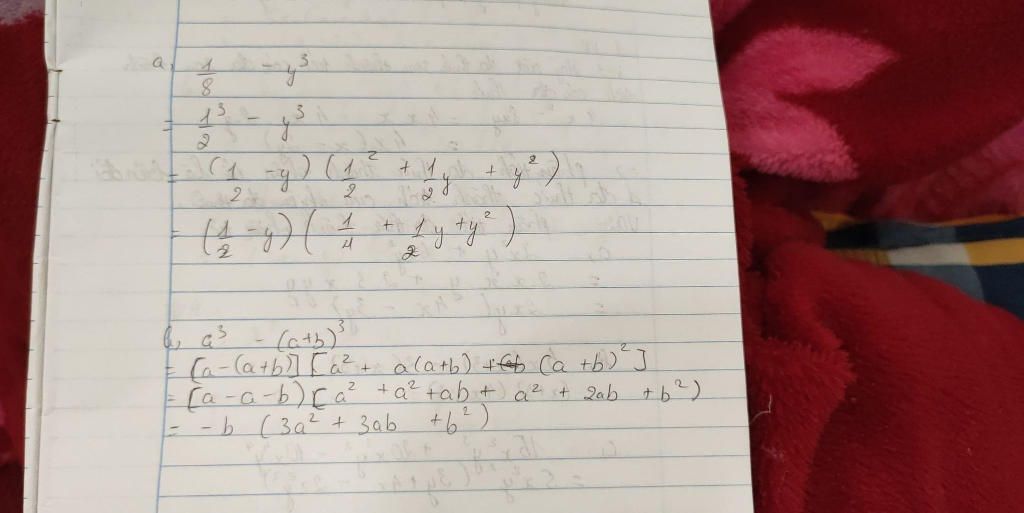 a, 1/8 - y³
= 1/2³ - y³
= (1/2 - y) (1/2² + 1/2 y + y²)
= (1/2 - y) (1/4 + 1/2 y + y²)
b, a³ - (a+b)³
= [a-(a+b)] [a² + a(a+b) + (a+b)²]
= [a-a-b) [a² + a² + ab + a² + 2ab + b²)
= -b (3a² + 3ab + b²)